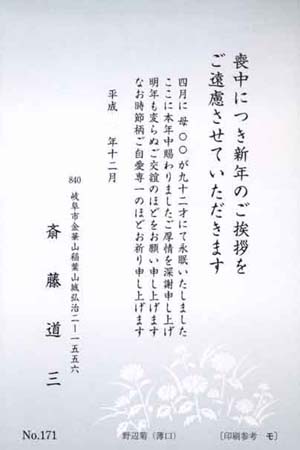 喪中につき新年のご挨拶を
ご遠慮させていただきます
四月に 母〇〇が九十二才にて永眠いたしました
ここに本年中賜わりましたご厚情を深謝申し上げ
明年も変らぬご交誼のほどをお願い申し上げます
なお時節柄ご自愛専一のほどお祈り申し上げます
平成　年十二月
840 岐阜市金華山稲葉山城弘治二ー一五五六
斎藤道三
No.171 野辺菊（薄口） ［印刷参考 モ］